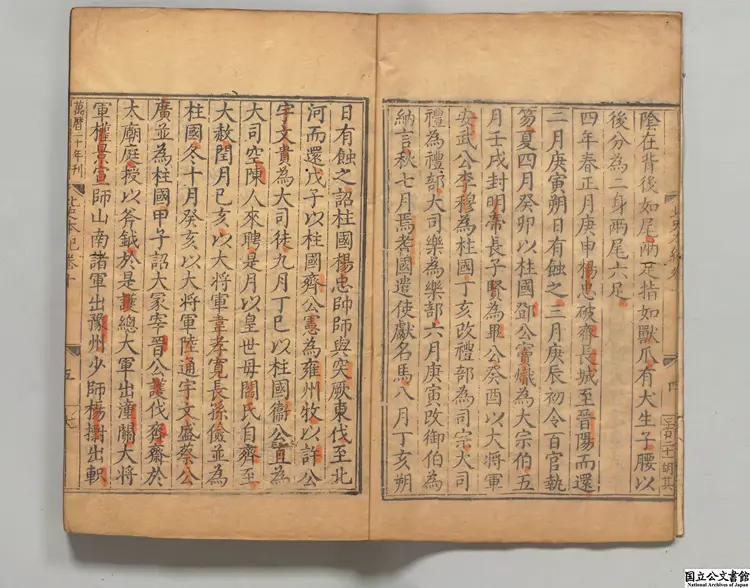 陰在背後如尾兩足指如獸爪有犬生子腰以
後分為二身兩尾六足
四年春正月庚申楊忠破齊長城至晉陽而還
二月庚寅朔日有蝕之三月庚辰初令百官執
笏夏四月癸卯以柱國鄧公竇熾為大宗伯五
月壬戌封明帝長子賢為畢公癸酉以大將軍
安武公李穆為柱國丁亥改禮部為司宗大司
禮為禮部大司樂為樂部六月庚寅改御伯為
納言秋七月焉耆國遣使獻名馬八月丁亥朔
日有蝕之詔柱國楊忠帥師與突厥東伐至北
河而還戊子以柱國齊公憲為雍州牧以許公
宇文貴為大司徒九月丁巳以柱國衞公直為
大司空陳人來聘是月以皇世母閻氏自齊至
大赦閏月己亥以大將軍韋孝寬長孫儉並為
柱國冬十月癸亥以大將軍陸通宇文盛蔡公
廣並為柱國甲子詔大冢宰晉公護伐齊齋於
太廟庭授以斧鉞於是護總大軍出潼關大將
軍權景宣師山南諸軍出豫州少師楊㩉出軹
萬曆二十年刊
北史本紀卷十
五
国立公文書館
National Archives of Japan